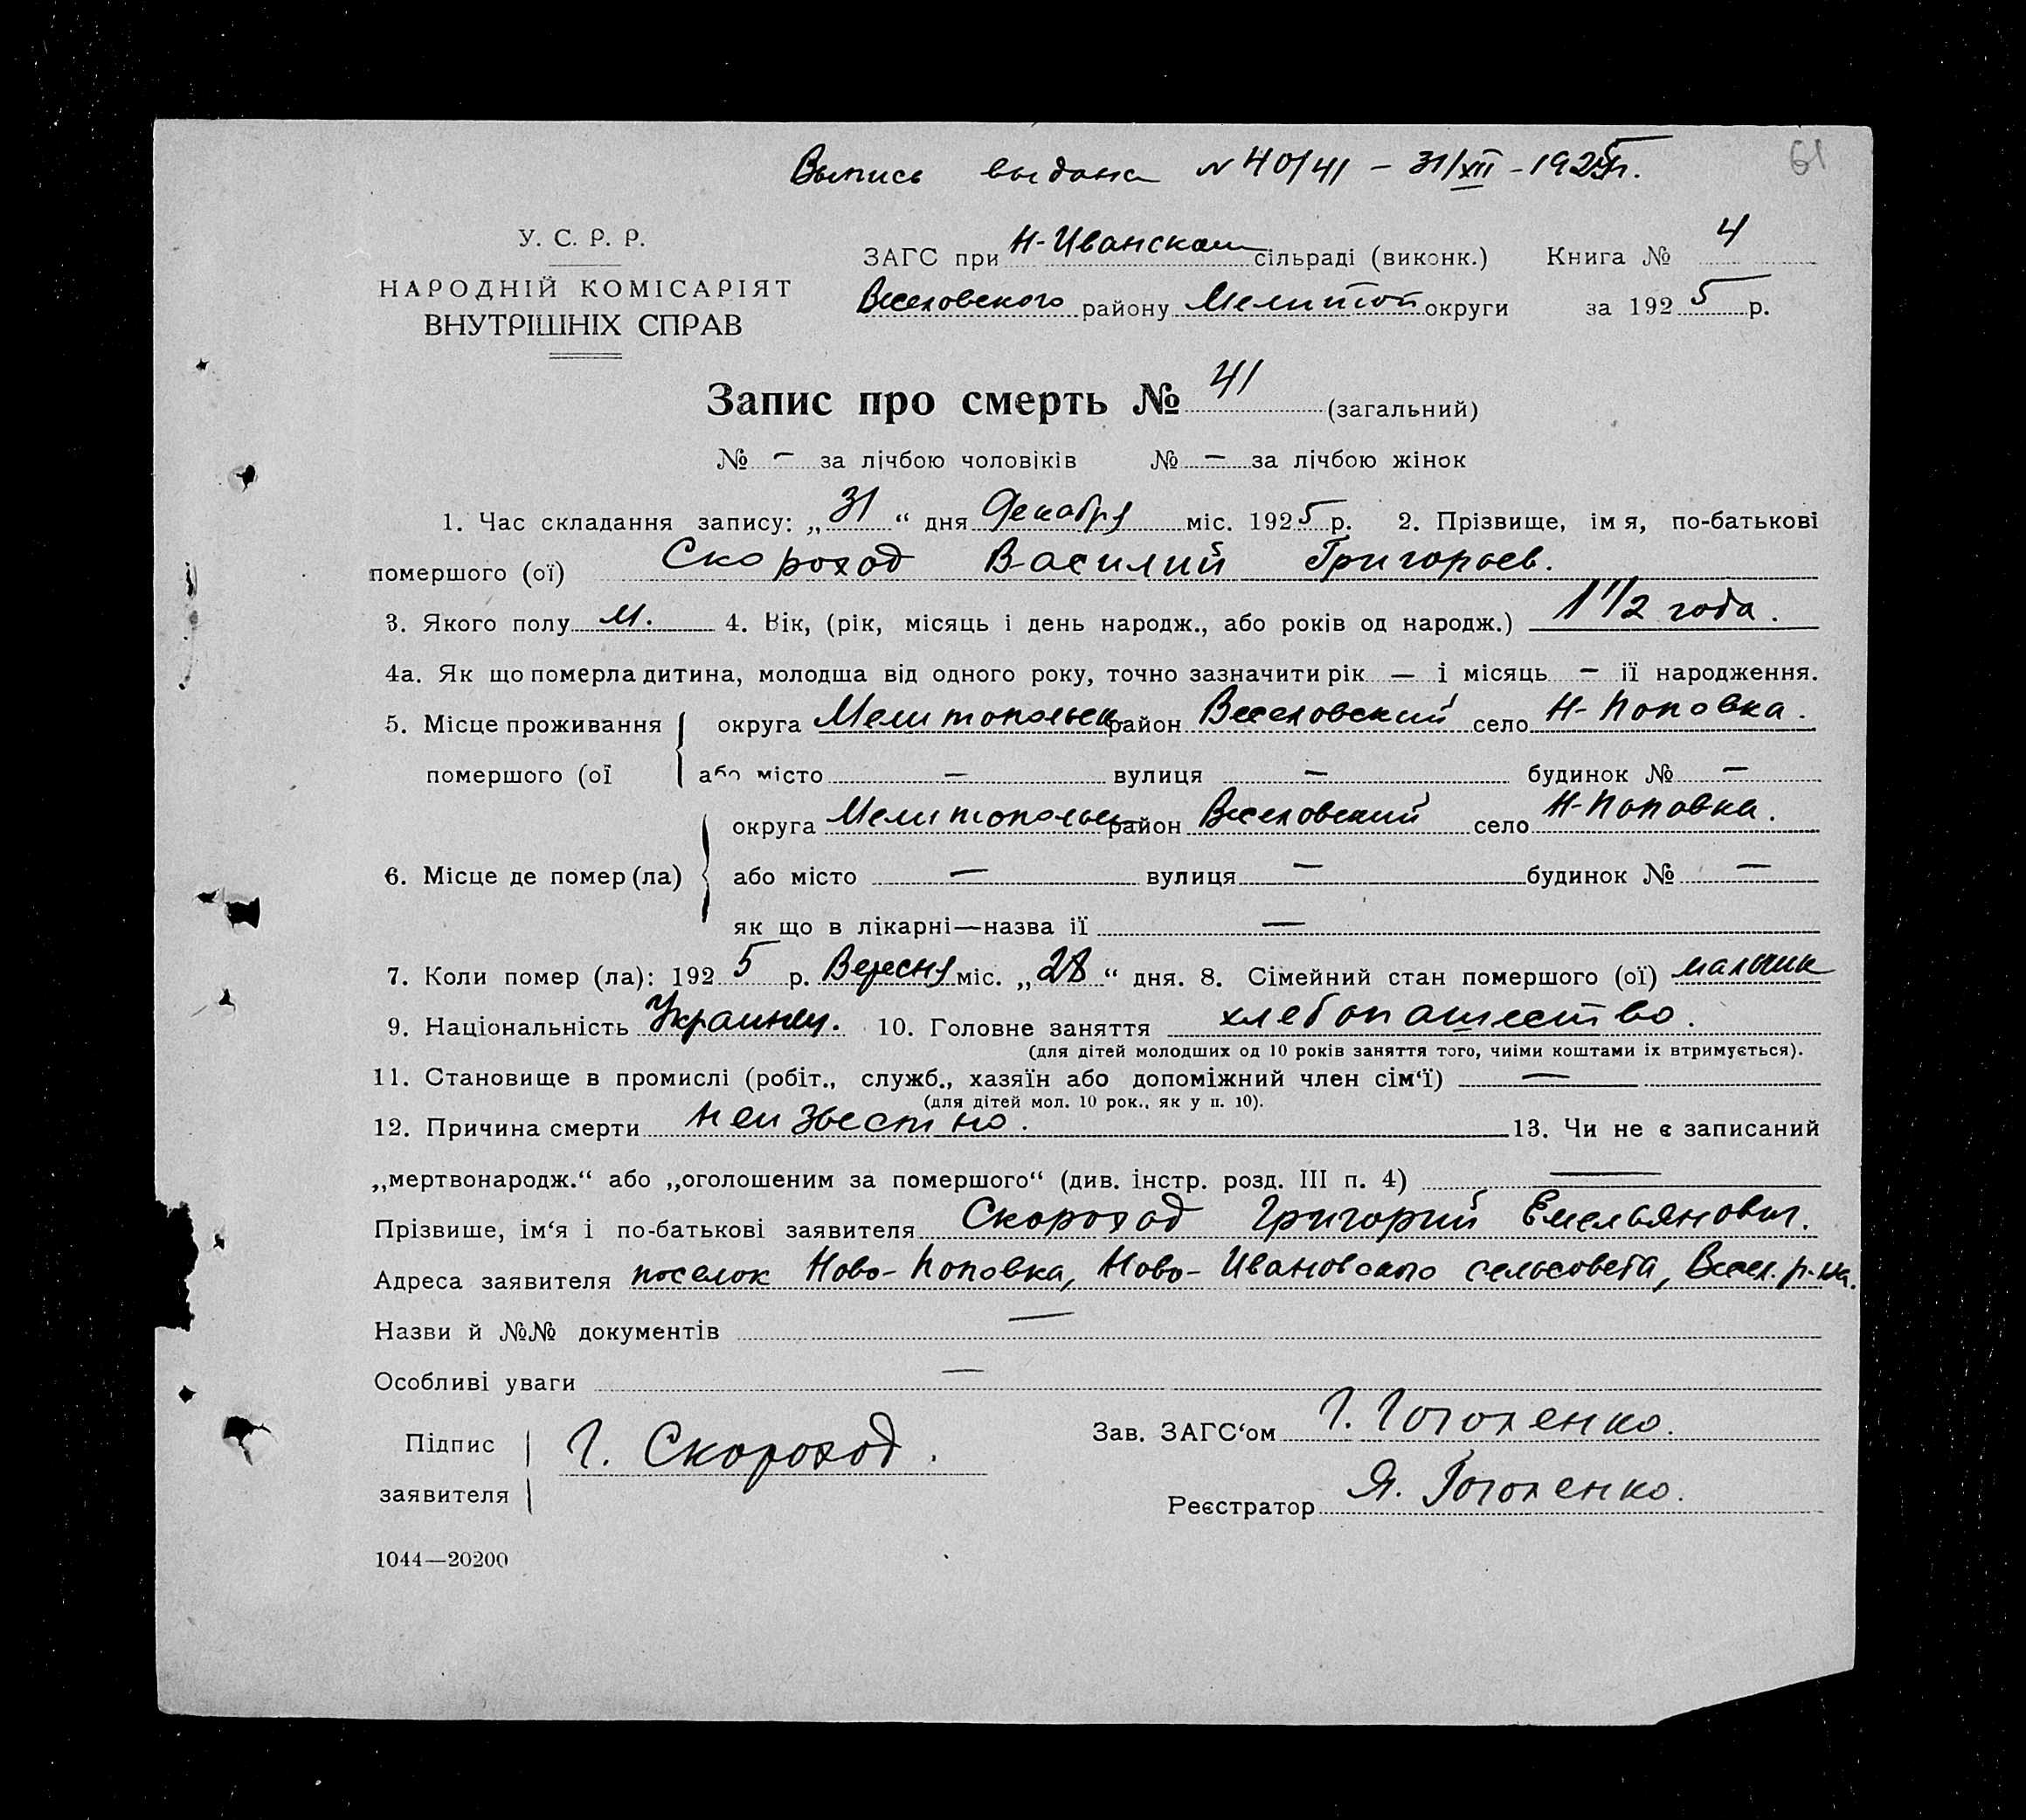 Выпись выдана N 40/41 – 31/XII – 1925г.
61
У. С. Р. Р.
НАРОДНІЙ КОМІСАРІЯТ
ВНУТРІШНІХ СПРАВ
ЗАГС при Н-Иванском сільраді (виконк.) Книга № 4
Веселовского району Мелитоп округи за 1925 р.
Запис про смерть № 41 (загальний)
№ – за лічбою чоловіків № – за лічбою жінок
1. Час складання запису: „31“ дня Декабря міс. 1925 р. 2. Прізвище, імя, по-батькові
помершого (ої) Скороход Василий Григорьев.
3. Якого полу М. 4. Вік, (рік, місяць і день народж., або років од народж.) 1 1/2 года.
4а. Як що померла дитина, молодша від одного року, точно зазначити рік — і місяць – її народження.
5. Місце проживання округа Мелитопольск район Веселовский село Н-Поповка.
помершого (ої або місто — вулиця — будинок № —
округа Мелитопольск район Веселовский село Н-Поповка.
6. Місце де помер (ла) або місто — вулиця — будинок № —
як що в лікарні—назва її —
7. Коли помер (ла): 1925 р. Вересня міс. „28“ дня. 8. Сімейний стан помершого (ої) мальчик
9. Національність Украинец. 10. Головне заняття хлебопашество.
(для дітей молодших од 10 років заняття того, чиїми коштами їх втримується).
11. Становище в промислі (робіт., служб., хазяїн або допоміжний член сім‘ї) —
(для дітей мол. 10 рок., як у п. 10).
12. Причина смерти неизвестно. 13. Чи не є записаний
„мертвонародж.“ або „оголошеним за помершого“ (див. інстр. розд. III п. 4) —
Прізвише, ім‘я і по-батькові заявителя Скороход Григорий Емельянович.
Адреса заявителя поселок Ново-Поповка, Ново-Ивановского сельсовета, Весел. р-на.
Назви й №№ документів —
Особливі уваги —
Підпис заявителя Г. Скороход.
Зав. ЗАГС‘ом Г. Гоголенко.
Реєстратор Я. Гоголенко.
1044—20200